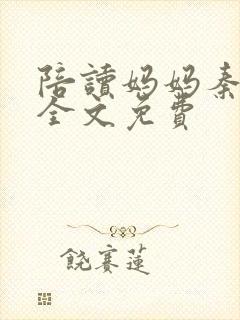 陪讀媽媽秦
全文免費
饒賽蓮